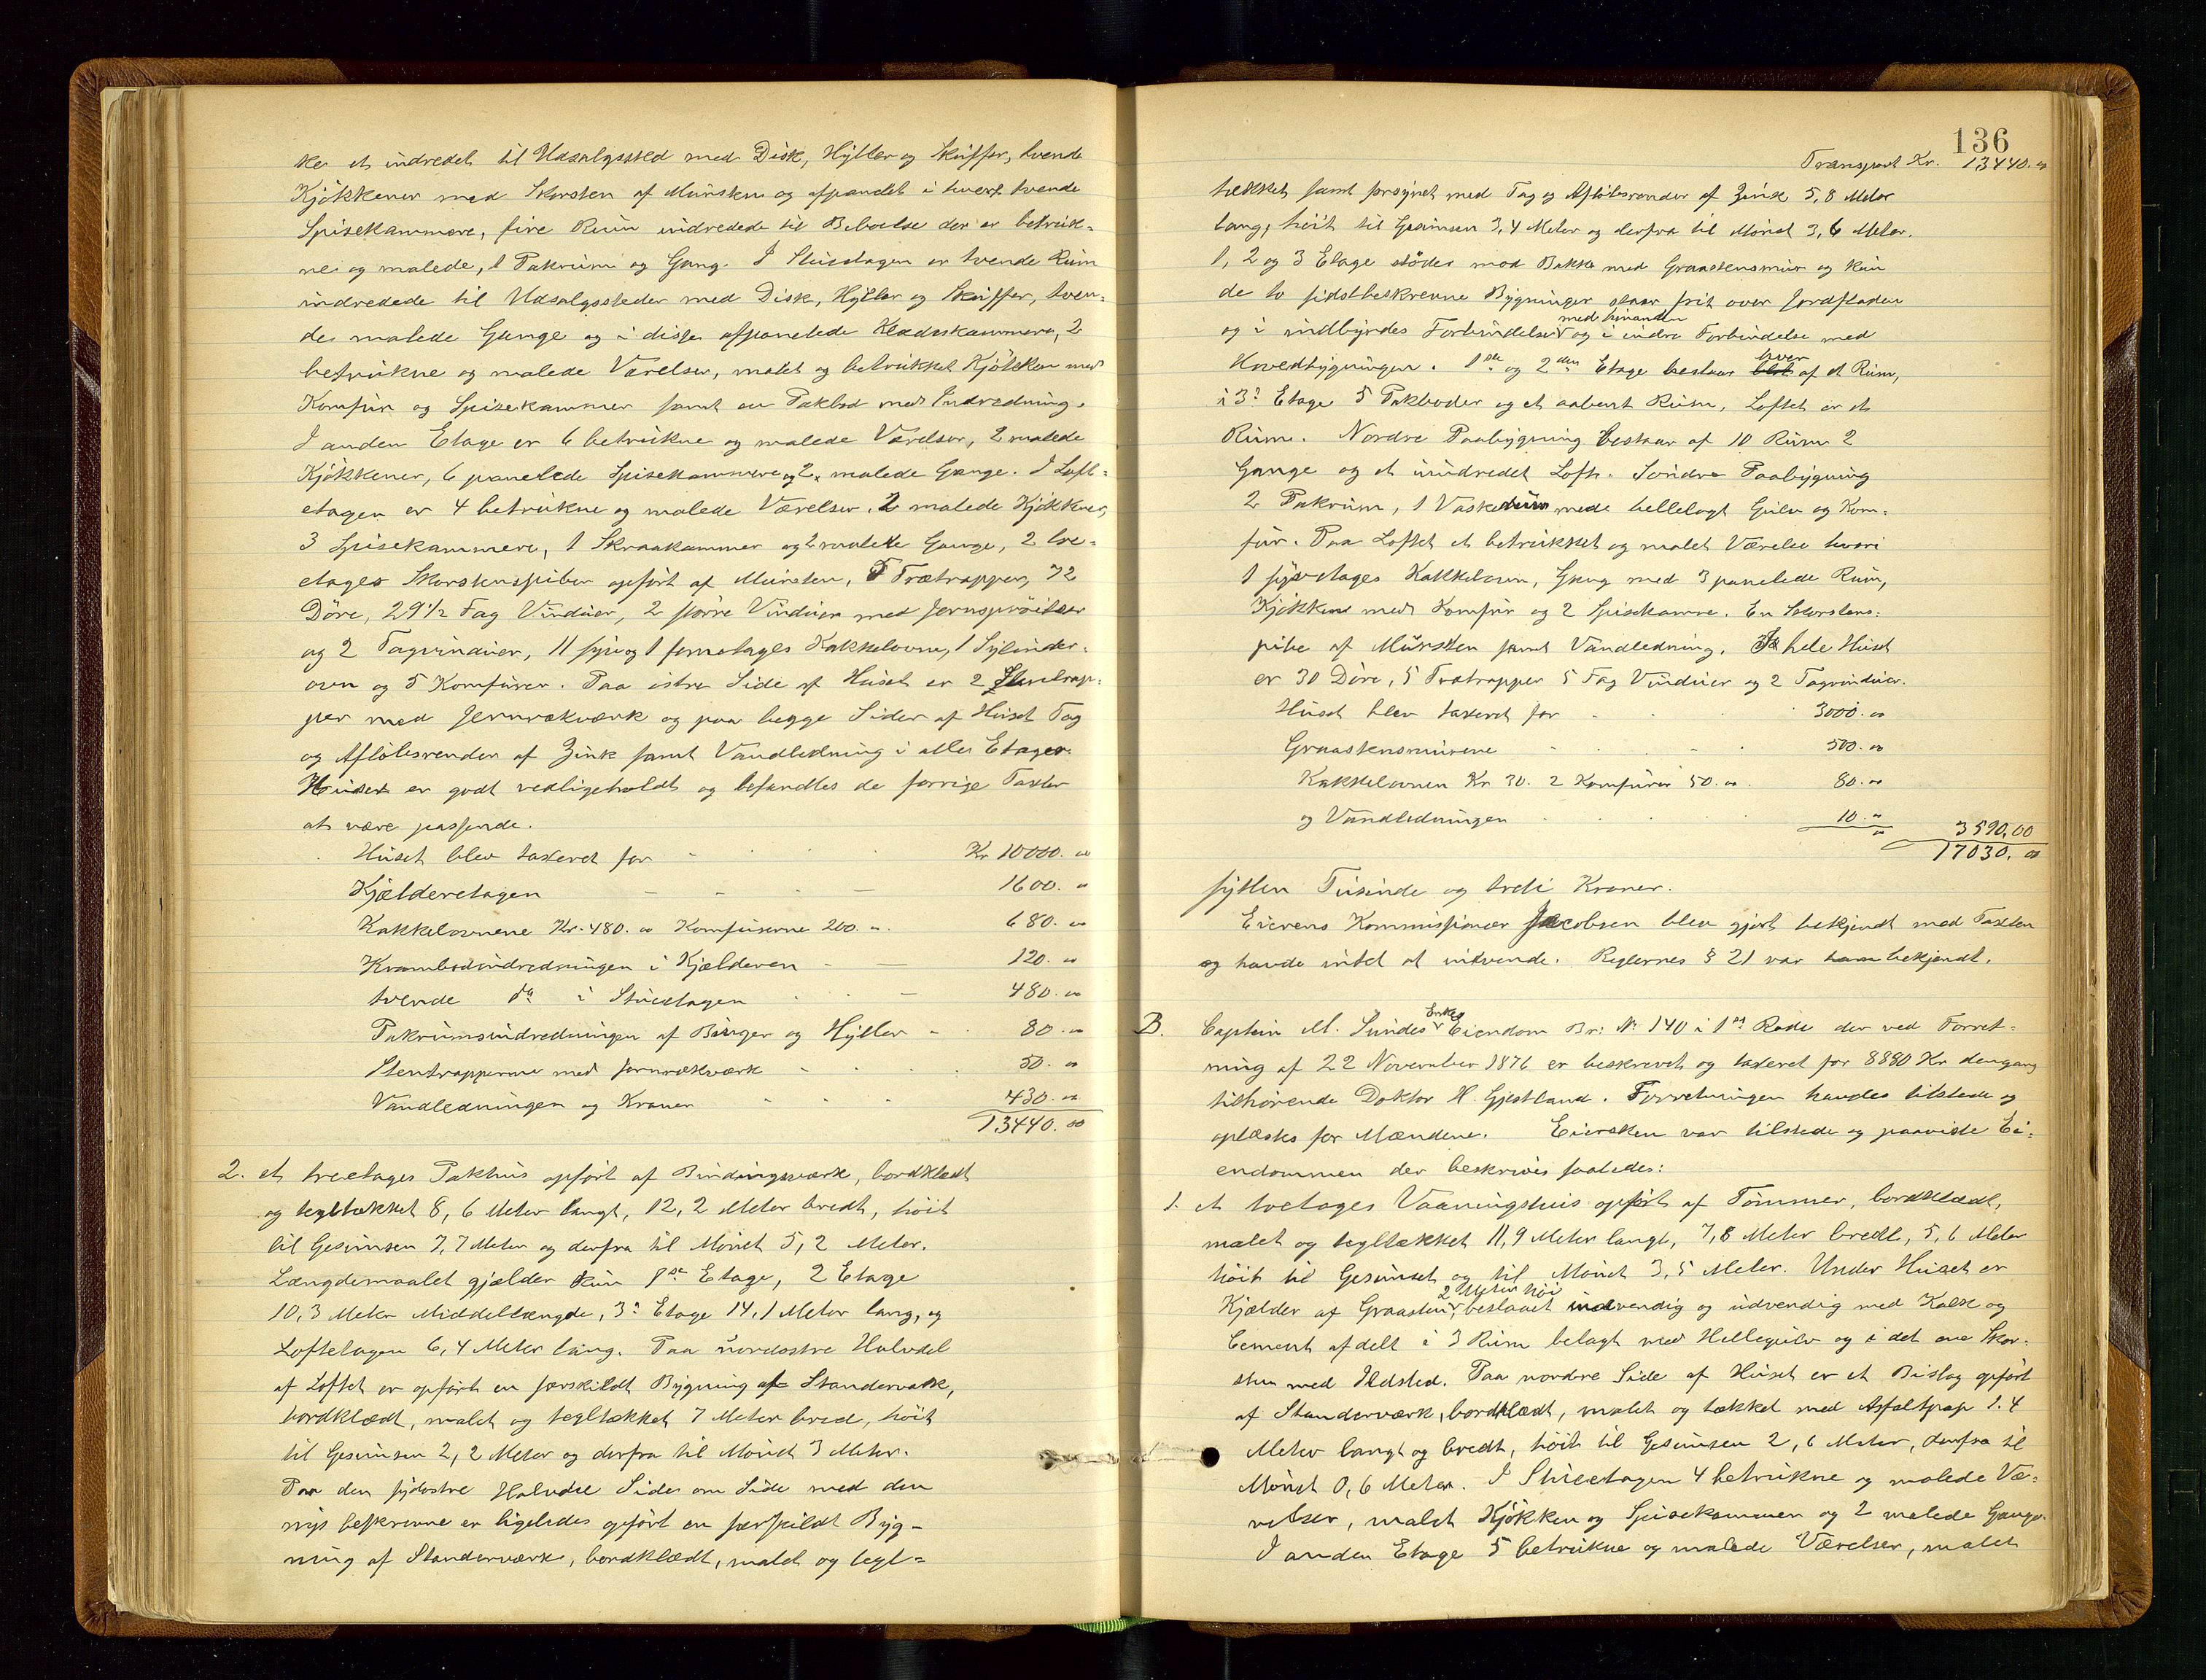 ker et indredet til Udsalgssted med Disk, Hylter og Skuffer, tvende
Kjøkkener med Skorsten af Mursten og afpanelet i hvert tvende
Spisekammere, fire Rum indredede til Beboelse der er betruk-
ne og malede, 1 Pakrum og Gang. I Stuetagen er tvende Rum
indredede til Udsalgssteder med Disk, Hylter og Skuffer, tven-
de malede Gange og i disse afpanelede Klædeskammere, 2
betrukne og malede Værelser, malet og betrukket Kjøkken med
Komfur og Spisekammer samt en Pakbod med Indredning.
I anden Etage er 6 betrukne og malede Værelser, 2 malede
Kjøkkener, 6 panelede Spisekammere og 2 malede Gange. I Loft-
etagen er 4 betrukne og malede Værelser, 2 malede Kjøkkner,
3 Spisekammere, 1 Skraakammer og 2 malede Gange, 2 tre-
etages Skorstenspiber opført af Mursten, 5 Trætrapper, 72
Døre, 29 1/2 Fag Vinduer, 2 større Vinduer med Jernsprøitser
og 2 Tagvinduer, 11 fyre og 1 femetages Kakkelovne, 1 Sylinder-
oven og 5 Komfurer. Paa østre Side af Huset er 2 Stentrap-
per med Jernrækværk og paa begge Sider af Huset Tag
og Afløbsrender af Zink samt Vandledning i alle Etager.
Huset er godt vedligeholdt og befandtes de forrige Taxter
at være passende.
Huset blev taxeret for Kr 10000. 00
Kjælderetagen 1600. 00
Kakkelovnene Kr. 480. 00 Komfurerne 200. 00 680. 00
Krambodindredningen i Kjælderen 120. 00
tvende do i Stuetagen 480. 00
Pakrumsindredningen af Binger og Hylter 80. 00
Stentrapperne med Jernrækværk 50. 00
Vandledningen og Kraner 430. 00
13440. 00
2. et treetages Pakhus opført af Bindingsværk, bordklædt
og tegltækket 8,6 Meter langt, 12,2 Meter bredt, høit
til Gesimsen 7,7 Meter og derfra til Mønet 5,2 Meter.
Længdemaalet gjælder kun 1ste Etage, 2 Etage
10,3 Meter Middellængde, 3. Etage 14,1 Meter lang, og
Loftetagen 6,4 Meter lang. Paa nordøstre Halvdel
af Loftet er opført en særskildt Bygning af Standerværk,
bordklædt, malet og tegltækket 7 Meter bred, høit
til Gesimsen 2,2 Meter og derfra til Mønet 3 Meter.
Paa den sydøstre Halvdel Side om Side med den
nys beskrevne er ligeledes opført en særskildt Byg-
ning af Standerværk, bordklædt, malet og tegl-
136
Transport Kr. 13440. 00
tækket samt forsynet med Tag og Afløbsrender af Zink 5,8 Meter
lang, høit til Gesimsen 3,4 Meter og derfra til Mønet 3,6 Meter.
1, 2 og 3 Etage støder mod Bakke med Graastensmur og kun
de to sidstbeskrevne Bygninger staar frit over Jordfladen
med hinanden
og i indbyrdes Forbindelse og i indre Forbindelse med
Hovedbygningen. 1ste og 2den Etage bestaar hver af et Rum,
i 3. Etage 5 Pakboder og et aabent Rum, Loftet er et
Rum. Nordre Paabygning bestaar af 10 Rum 2
Gange og et uindredet Loft. Søndre Paabygning
2 Pakrum, 1 Vaskerum med hellelagt Gulv og Kom-
fur. Paa Loftet et betrukket og malet Værelse hvori
1 fyretages Kakkelovn, Gang med 3 panelede Rum,
Kjøkken med Komfur og 2 Spisekamre. En Skorstens-
pibe af Mursten samt Vandledning. I hele Huset
er 30 Døre, 5 Trætrapper 5 Fag Vinduer og 2 Tagvinduer.
Huset blev taxeret for 3000. 00
Graastensmurene 500. 00
Kakkelovnen Kr 30. 2 Komfurer 50. 00 80. 00
og Vandledningen 10. 00 3590,00
17030. 00
sytten Tusinde og tredi Kroner.
Eierens Kommissionær Jacobsen blev gjort bekjendt med Taxten
og havde intet at indvende. Reglernes § 21 var ham bekjendt.
B. Captein M. Sundes Enkes Eiendom Br: No 140 i 1ste Rode der ved Forret-
ning af 22 November 1876 er beskrevet og taxeret for 8890 Kr dengang
tilhørende Doktor H. Gjestland. Forretningen havdes tilstede og
oplæstes for Mændene. Eiersken var tilstede og paaviste Ei-
endommen der beskrives saaledes:
1. et toetages Vaaningshus opført af Tømmer, bordklædt,
malet og tegltækket 11,9 Meter langt, 7,8 Meter bredt, 5,6 Meter
høit til Gesimset og til Mønet 3,5 Meter. Under Huset er
2 Meter høi
Kjælder af Graasten, beslaaet indvendig og udvendig med Kalk og
Cement afdelt i 3 Rum belagt med Hellegulv og i det ene Skor-
sten med Ildsted. Paa nordre Side af Huset er et Bislag opført
af Standerværk, bordklædt, malet og tækket med Asfaltpap 1.4
Meter langt og bredt, høit til Gesimsen 2,6 Meter, derfra til
Mønet 0,6 Meter. I Stueetagen 4 betrukne og malede Væ-
relser, malet Kjøkken og Spisekammer og 2 malede Gange.
I anden Etage 5 betrukne og malede Værelser, malet